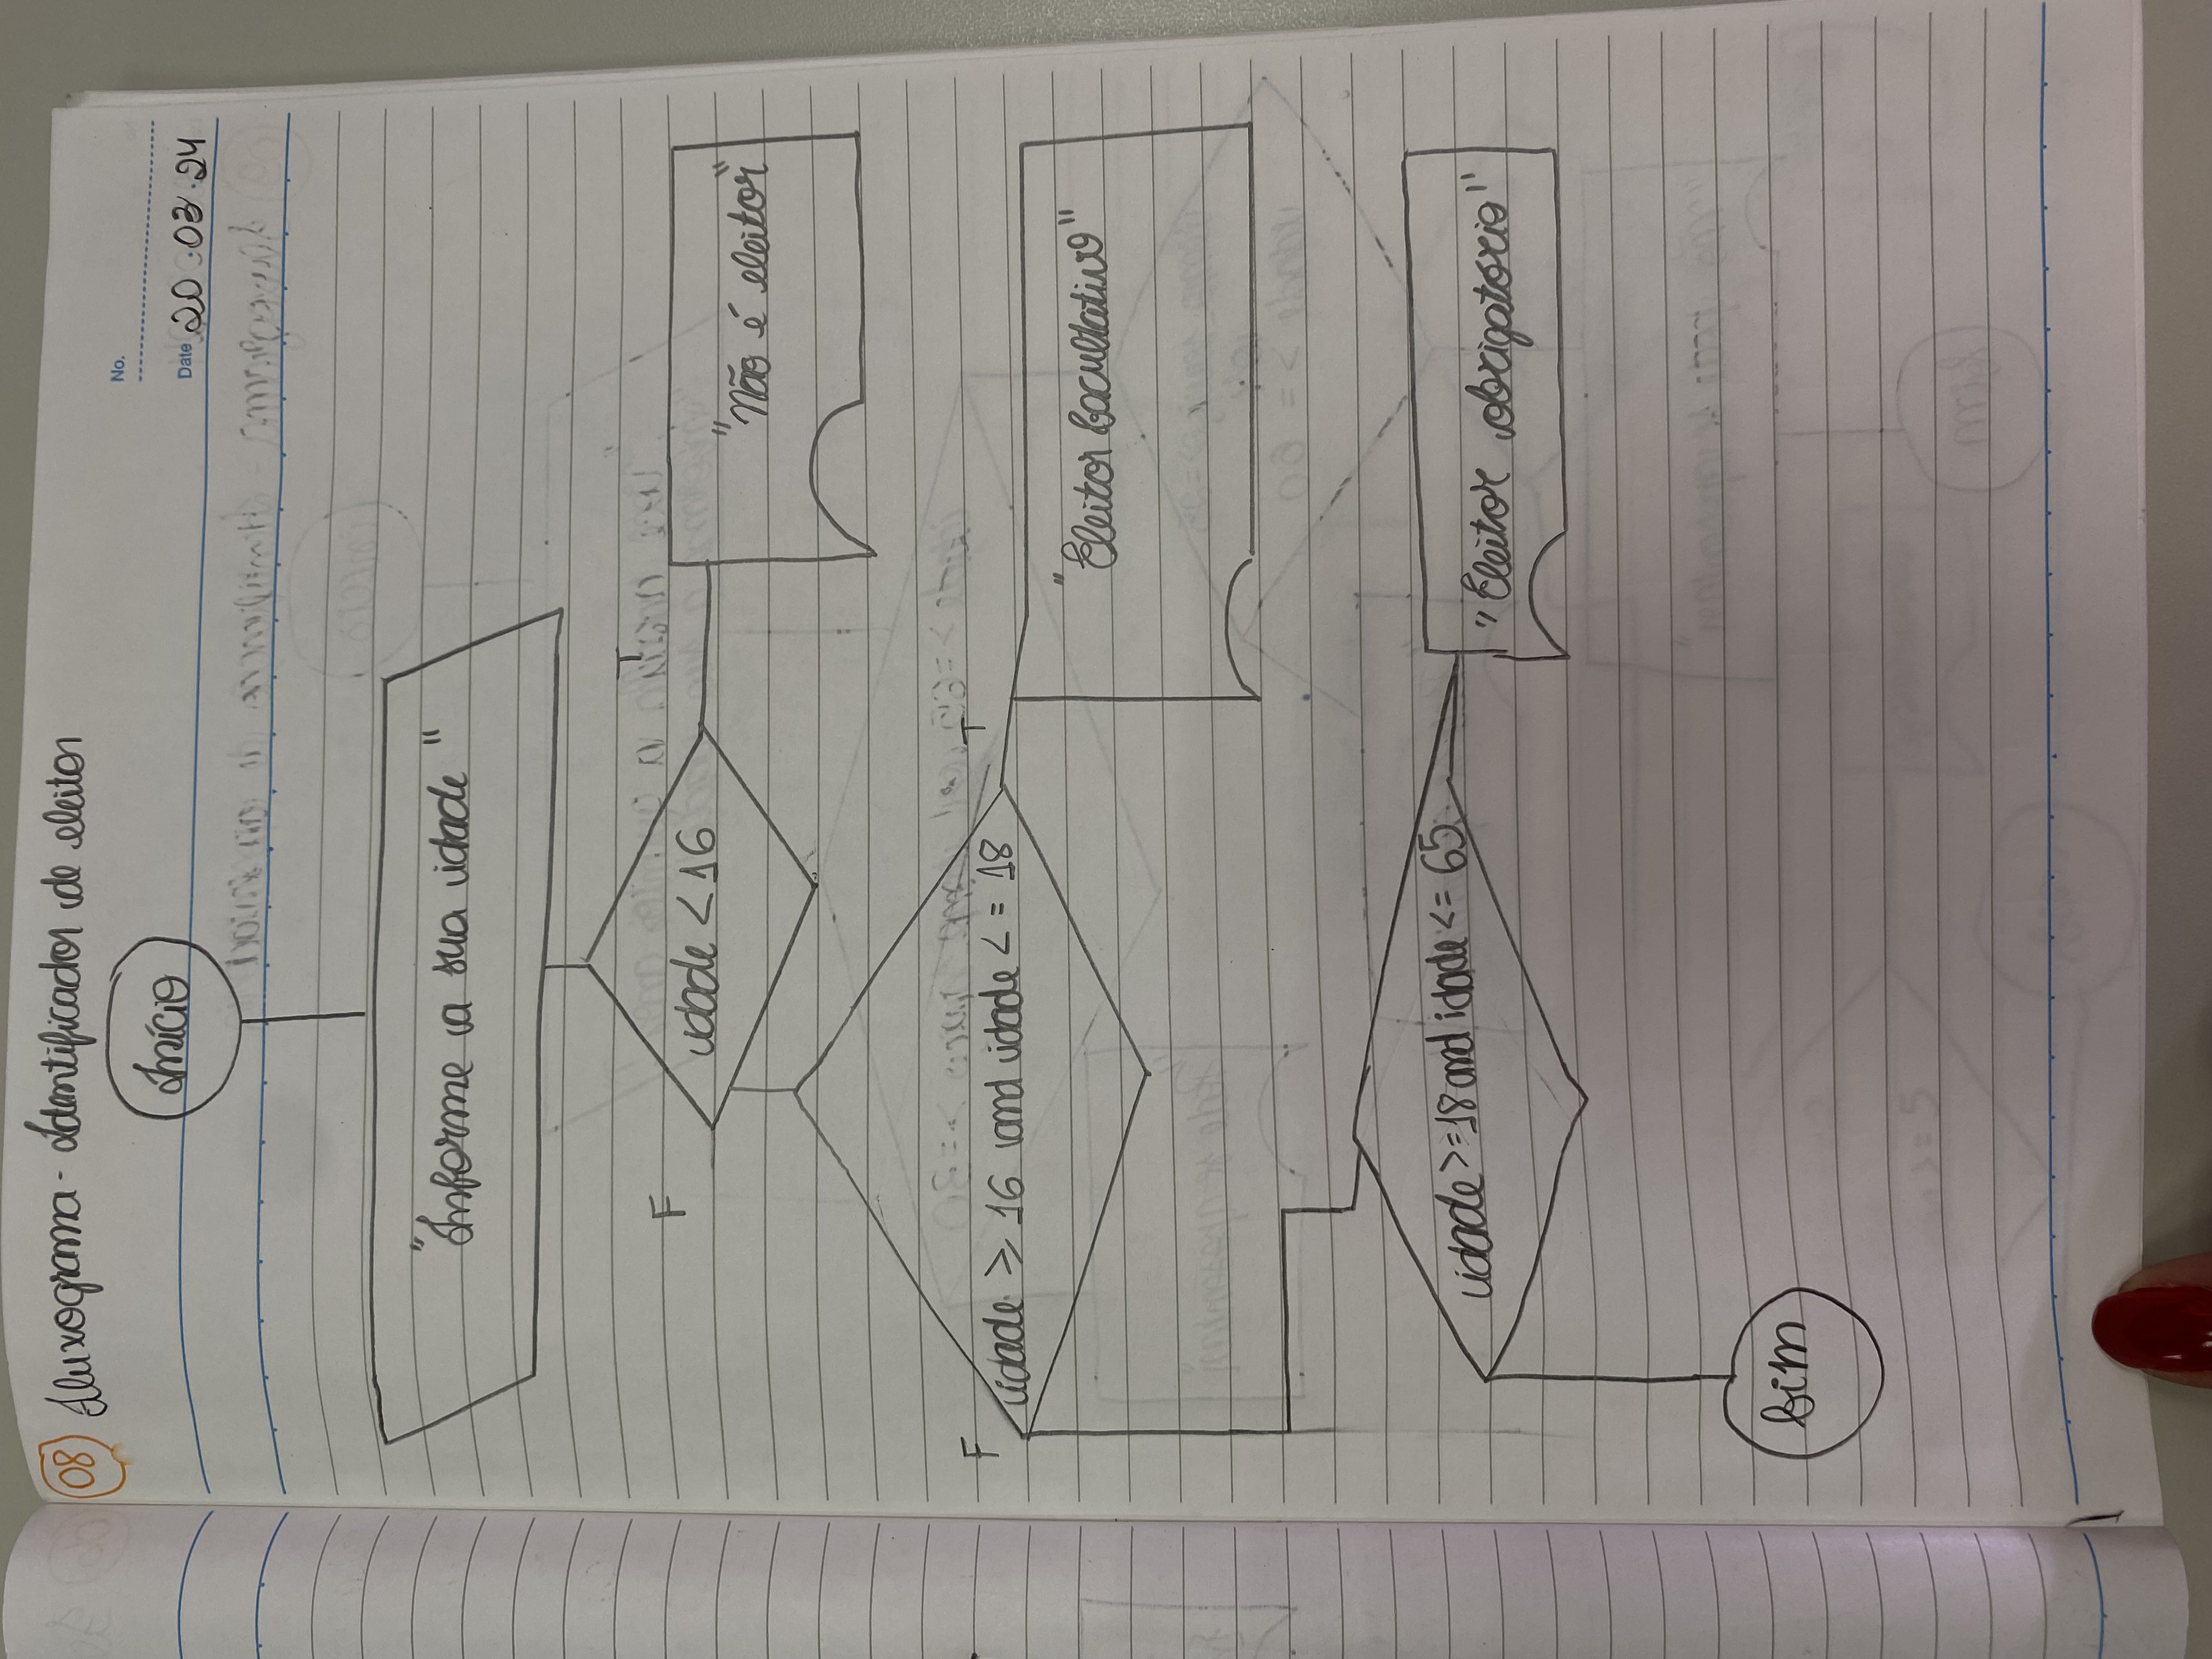 08 Fluxograma - Identificador de eleitor
Início
No.
Date 20.03.24
"Informe a sua idade"
F
T
idade < 16
"Não é eleitor"
F
T
idade ≥ 16 and idade < = 18
"Eleitor facultativo"
idade >= 18 and idade <= 65
"Eleitor obrigatório"
fim